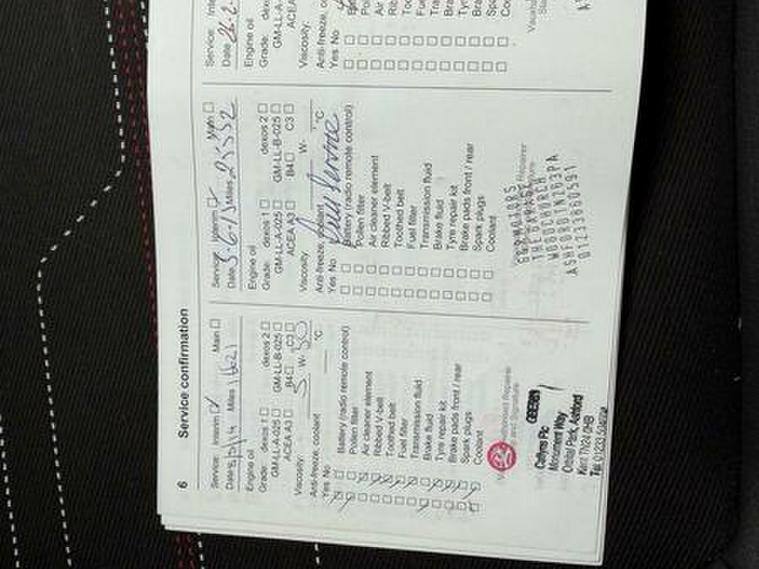 6
Service confirmation
Service: Interim Main
Date Miles 11621
Engine oil
Grade: dexos 1 dexos 2
GM-LL-A-025 GM-LL-B-025
ACEA A3 B4 C3
Viscosity: 5 W- 30 °C
Anti-freeze, coolant
Yes No
Battery (radio remote control)
Pollen filter
Air cleaner element
Ribbed V-belt
Toothed belt
Fuel filter
Transmission fluid
Brake fluid
Tyre repair kit
Brake pads front / rear
Spark plugs
Coolant
Authorised Repairer
Stamp and Signature
Caffyns Plc
Monument Way
Orbital Park, Ashford
Kent TN24 0HB
Service: Interim Main
Date 5-6-15 Miles 25552
Engine oil
Grade: dexos 1 dexos 2
GM-LL-A-025 GM-LL-B-025
ACEA A3 B4 C3
Viscosity: W- °C
Anti-freeze, coolant
Full Service
Yes No
Battery (radio remote control)
Pollen filter
Air cleaner element
Ribbed V-belt
Toothed belt
Fuel filter
Transmission fluid
Brake fluid
Tyre repair kit
Brake pads front / rear
Spark plugs
Coolant
Repairer
MOTORS
THE GARAGE
WOODCHURCH
ASHFORD TN26 3PA
01233860591
Service:
Date
Engine oil
Grade: dexos
GM-LL-A
ACEA
Viscosity:
Anti-freeze,
Yes No